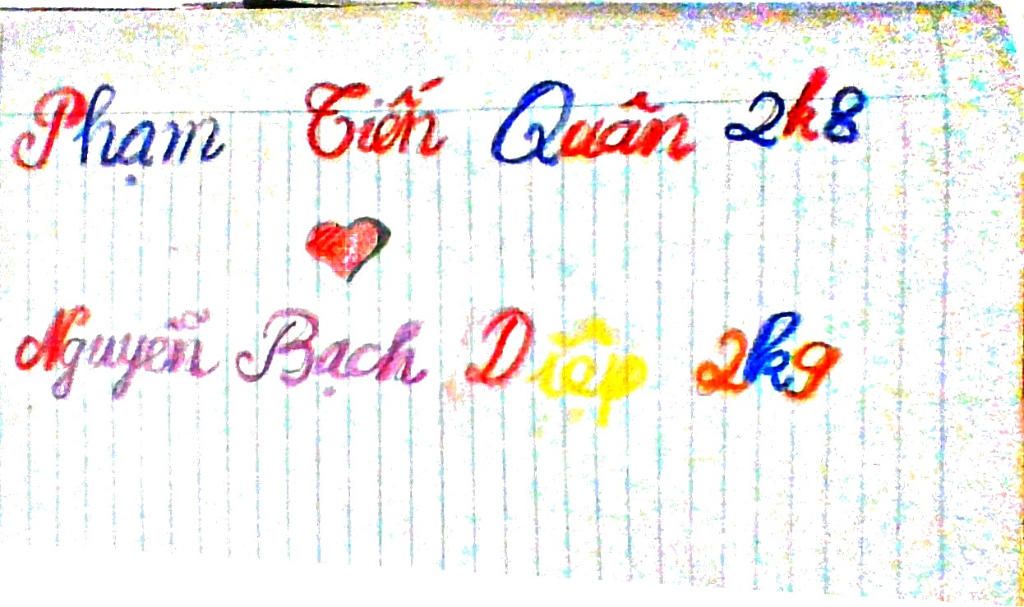 Phạm Tiến Quân 2k8
Nguyễn Bạch Diệp 2k9